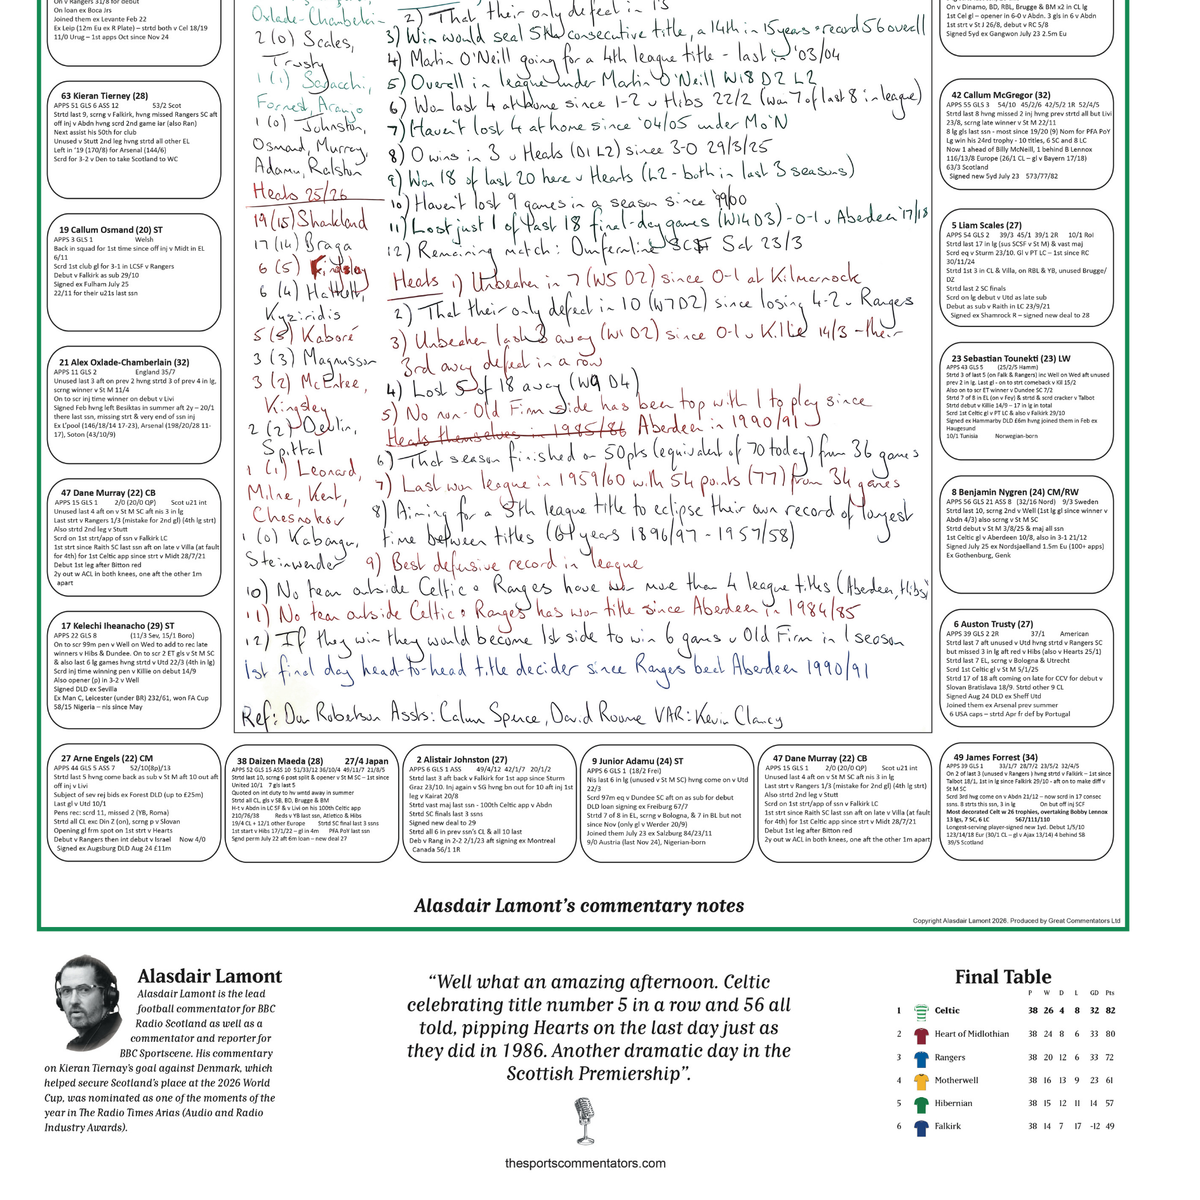 On v Rangers 31/8 for debut
On loan ex Boca Jrs
Joined them ex Levante Feb 22
Ex Leip (12m Eu ex R Plate) – strtd both v Cel 18/19
11/0 Urug – 1st apps Oct since Nov 24
63 Kieran Tierney (28)
APPS 51 GLS 6 ASS 12 53/2 Scot
Strtd last 9, scrng v Falkirk, hvng missed Rangers SC aft
off inj v Abdn hvng scrd 2nd game iar (also Ran)
Next assist his 50th for club
Unused v Stutt 2nd leg hvng strtd all other EL
Left in '19 (170/8) for Arsenal (144/6)
Scrd for 3-2 v Den to take Scotland to WC
19 Callum Osmand (20) ST
APPS 3 GLS 1 Welsh
Back in squad for 1st time since off inj v Midt in EL
6/11
Scrd 1st club gl for 3-1 in LCSF v Rangers
Debut v Falkirk as sub 29/10
Signed ex Fulham July 25
22/11 for their u21s last ssn
21 Alex Oxlade-Chamberlain (32)
APPS 11 GLS 2 England 35/7
Unused last 3 aft on prev 2 hvng strtd 3 of prev 4 in lg,
scrng winner v St M 11/4
On to scr inj time winner on debut v Livi
Signed Feb hvng left Besiktas in summer aft 2y – 20/1
there last ssn, missing strt & very end of ssn inj
Ex L'pool (146/18/14 17-23), Arsenal (198/20/28 11-
17), Soton (43/10/9)
47 Dane Murray (22) CB
APPS 15 GLS 1 2/0 (20/0 QP) Scot u21 int
Unused last 4 aft on v St M SC aft nis 3 in lg
Last strt v Rangers 1/3 (mistake for 2nd gl) (4th lg strt)
Also strtd 2nd leg v Stutt
Scrd on 1st strt/app of ssn v Falkirk LC
1st strt since Raith SC last ssn aft on late v Villa (at fault
for 4th) for 1st Celtic app since strt v Midt 28/7/21
Debut 1st leg after Bitton red
2y out w ACL in both knees, one aft the other 1m
apart
17 Kelechi Iheanacho (29) ST
APPS 22 GLS 8 (11/3 Sev, 15/1 Boro)
On to scr 99m pen v Well on Wed aft on to rep to scr late
winners v Hibs & Dundee. On to scr 2 ET gls v St M SC
& also last 6 lg games hvng strtd v Utd 22/3 (4th in lg)
Scrd inj time winning pen v Killie on debut 14/9
Also opener (p) in 3-2 v Well
Signed DLD ex Sevilla
Ex Man C, Leicester (under BR) 232/61, won FA Cup
58/15 Nigeria – nis since May
Oxlade-Chamberlain
2 (0) Scales,
Trusty
1 (1) Saracchi,
Forrest, Araujo
1 (0) Johnston,
Osmand, Murray,
Adamu, Ralston
Hearts 25/26
19 (15) Shankland
17 (14) Braga
6 (5) Kingsley
6 (4) Halkett,
Kyziridis
5 (5) Kaboré
3 (3) Magnusson
3 (2) McEntee,
Kingsley
2 (2) Devlin,
Spittal
1 (1) Leonard,
Milne, Kent,
Chesnokov
1 (0) Kabangu,
Steinwender
2) That their only defeat in 13
3) Win would seal 5th consecutive title, a 14th in 15 years + record 56 overall
4) Martin O'Neill going for a 4th league title - last in '03/04
5) Overall in league under Martin O'Neill W18 D2 L2
6) Won last 4 at home since 1-2 v Hibs 22/2 (won 7 of last 8 in league)
7) Haven't lost 4 at home since '04/05 under MO'N
8) 0 wins in 3 v Hearts (D1 L2) since 3-0 29/3/25
9) Won 18 of last 20 here v Hearts (L2 - both in last 3 seasons)
10) Haven't lost 9 games in a season since '99/00
11) Lost just 1 of last 18 final-day games (W14 D3) - 0-1 v Aberdeen '17/18
12) Remaining match: Dunfermline SCF Sat 23/3
Hearts 1) Unbeaten in 7 (W5 D2) since 0-1 at Kilmarnock
2) That their only defeat in 10 (W7 D2) since losing 4-2 v Rangers
3) Unbeaten last 3 away (W1 D2) since 0-1 v Killie 14/3 - their
3rd away defeat in a row
4) Lost 5 of 18 away (W9 D4)
5) No non-Old Firm side has been top with 1 to play since
Hearts themselves in 1985/86 Aberdeen in 1990/91
6) That season finished on 50pts (equivalent of 70 today) from 36 games
7) Last won league in 1959/60 with 54 points (77) from 34 games
8) Aiming for a 5th league title to eclipse their own record of longest
time between titles (61 years 1896/97 - 1957/58)
9) Best defensive record in league
10) No team outside Celtic + Rangers have won more than 4 league titles (Aberdeen, Hibs)
11) No team outside Celtic + Rangers has won title since Aberdeen in 1984/85
12) If they win they would become 1st side to win 6 games v Old Firm in 1 season
1st final day head-to-head title decider since Rangers beat Aberdeen 1990/91
Ref: Don Robertson Assts: Calum Spence, David Roome VAR: Kevin Clancy
On v Dinamo, BD, RBL, Brugge & BM x2 in CL lg
1st Cel gl – opener in 6-0 v Abdn. 3 gls in 6 v Abdn
1st strt v St J 26/8, debut v RC 5/8
Signed 5yd ex Gangwon July 23 2.5m Eu
42 Callum McGregor (32)
APPS 55 GLS 3 54/10 45/2/6 42/5/2 1R 52/4/5
Strtd last 8 hvng missed 2 inj hvng prev strtd all but Livi
23/8, scrng late winner v St M 22/11
8 lg gls last ssn - most since 19/20 (9) Nom for PFA PoY
Lg win his 23rd trophy - 10 titles, 6 SC and 8 LC
Now 1 ahead of Billy McNeill, 1 behind B Lennox
116/13/8 Europe (26/1 CL – gl v Bayern 17/18)
63/3 Scotland
Signed new 5yd July 23 573/77/82
5 Liam Scales (27)
APPS 54 GLS 2 39/3 45/1 39/1 2R 10/1 RoI
Strtd last 17 in lg (sus SCSF v St M) & vast maj
Scrd eq v Sturm 23/10. Gl v PT LC – 1st since RC
30/11/24
Strtd 1st 3 in CL & Villa, on RBL & YB, unused Brugge/
DZ
Strtd last 2 SC finals
Scrd on lg debut v Utd as late sub
Debut as sub v Raith in LC 23/9/21
Signed ex Shamrock R – signed new deal to 28
23 Sebastian Tounekti (23) LW
APPS 43 GLS 5 (25/2/5 Hamm)
Strtd 3 of last 5 (on Falk & Rangers) inc Well on Wed aft unused
prev 2 in lg. Last gl - on to strt comeback v Kil 15/2
Also on to scr ET winner v Dundee SC 7/2
Strtd 7 of 8 in EL (on v Fey) & strtd & scrd cracker v Talbot
Strtd debut v Killie 14/9 – 17 in lg in total
Scrd 1st Celtic gl v PT LC & also v Falkirk 29/10
Signed ex Hammarby DLD £6m hvng joined them in Feb ex
Haugesund
10/1 Tunisia Norwegian-born
8 Benjamin Nygren (24) CM/RW
APPS 56 GLS 21 ASS 8 (32/16 Nord) 9/3 Sweden
Strtd last 10, scrng 2nd v Well (1st lg gl since winner v
Abdn 4/3) also scrng v St M SC
Strtd debut v St M 3/8/25 & maj all ssn
1st Celtic gl v Aberdeen 10/8, also in 3-1 21/12
Signed July 25 ex Nordsjaelland 1.5m Eu (100+ apps)
Ex Gothenburg, Genk
6 Auston Trusty (27)
APPS 39 GLS 2 2R 37/1 American
Strtd last 7 aft unused v Utd hvng strtd v Rangers SC
but missed 3 in lg aft red v Hibs (also v Hearts 25/1)
Strtd last 7 EL, scrng v Bologna & Utrecht
Scrd 1st Celtic gl v St M 5/1/25
Strtd 17 of 18 aft coming on late for CCV for debut v
Slovan Bratislava 18/9. Strtd other 9 CL
Signed Aug 24 DLD ex Sheff Utd
Joined them ex Arsenal prev summer
6 USA caps – strtd Apr fr def by Portugal
27 Arne Engels (22) CM
APPS 44 GLS 5 ASS 7 52/10(8p)/13
Strtd last 5 hvng come back as sub v St M aft 10 out aft
off inj v Livi
Subject of sev rej bids ex Forest DLD (up to £25m)
Last gl v Utd 10/1
Pens rec: scrd 11, missed 2 (YB, Roma)
Strtd all CL exc Din Z (on), scrng p v Slovan
Opening gl frm spot on 1st strt v Hearts
Debut v Rangers then int debut v Israel Now 4/0
Signed ex Augsburg DLD Aug 24 £11m
38 Daizen Maeda (28) 27/4 Japan
APPS 52 GLS 15 ASS 10 51/33/12 36/10/4 49/11/7 21/8/5
Strtd last 10, scrng 6 post split & opener v St M SC – 1st since
United 10/1 7 gls last 5
Quoted on int duty to hv wntd away in summer
Strtd all CL, gls v SB, BD, Brugge & BM
H-t v Abdn in LC SF & v Livi on his 100th Celtic app
210/76/38 Reds v YB last ssn, Atletico & Hibs
19/4 CL + 12/1 other Europe Strtd SC final last 3 ssns
1st start v Hibs 17/1/22 – gl in 4m PFA PoY last ssn
Sgnd perm July 22 aft 6m loan – new deal 27
2 Alistair Johnston (27)
APPS 6 GLS 1 ASS 49/4/12 42/1/7 20/1/2
Strtd last 3 aft back v Falkirk for 1st app since Sturm
Graz 23/10. Inj again v SG hvng bn out for 10 aft inj 1st
leg v Kairat 20/8
Strtd vast maj last ssn - 100th Celtic app v Abdn
Strtd SC finals last 3 ssns
Signed new deal to 29
Strtd all 6 in prev ssn's CL & all 10 last
Deb v Rang in 2-2 2/1/23 aft signing ex Montreal
Canada 56/1 1R
9 Junior Adamu (24) ST
APPS 6 GLS 1 (18/2 Frei)
Nis last 6 in lg (unused v St M SC) hvng come on v Utd
22/3
Scrd 97m eq v Dundee SC aft on as sub for debut
DLD loan signing ex Freiburg 67/7
Strtd 7 of 8 in EL, scrng v Bologna, & 7 in BL but not
since Nov (only gl v Werder 20/9)
Joined them July 23 ex Salzburg 84/23/11
9/0 Austria (last Nov 24), Nigerian-born
47 Dane Murray (22) CB
APPS 15 GLS 1 2/0 (20/0 QP) Scot u21 int
Unused last 4 aft on v St M SC aft nis 3 in lg
Last strt v Rangers 1/3 (mistake for 2nd gl) (4th lg strt)
Also strtd 2nd leg v Stutt
Scrd on 1st strt/app of ssn v Falkirk LC
1st strt since Raith SC last ssn aft on late v Villa (at fault
for 4th) for 1st Celtic app since strt v Midt 28/7/21
Debut 1st leg after Bitton red
2y out w ACL in both knees, one aft the other 1m apart
49 James Forrest (34)
APPS 39 GLS 1 33/1/7 28/7/2 23/5/2 32/4/5
On 2 of last 3 (unused v Rangers ) hvng strtd v Falkirk – 1st since
Talbot 18/1, 1st in lg since Falkirk 29/10 - aft on to make diff v
St M SC
Scrd 3rd hvng come on v Abdn 21/12 – now scrd in 17 consec
ssns. 8 strts this ssn, 3 in lg On but off inj SCF
Most decorated Celt w 26 trophies, overtaking Bobby Lennox
13 lgs, 7 SC, 6 LC 567/111/110
Longest-serving player-signed new 1yd. Debut 1/5/10
123/14/18 Eur (30/1 CL – gl v Ajax 13/14) 4 behind SB
39/5 Scotland
Alasdair Lamont's commentary notes
Copyright Alasdair Lamont 2026. Produced by Great Commentators Ltd
Alasdair Lamont
Alasdair Lamont is the lead
football commentator for BBC
Radio Scotland as well as a
commentator and reporter for
BBC Sportscene. His commentary
on Kieran Tiernay's goal against Denmark, which
helped secure Scotland's place at the 2026 World
Cup, was nominated as one of the moments of the
year in The Radio Times Arias (Audio and Radio
Industry Awards).
“Well what an amazing afternoon. Celtic
celebrating title number 5 in a row and 56 all
told, pipping Hearts on the last day just as
they did in 1986. Another dramatic day in the
Scottish Premiership”.
thesportscommentators.com
Final Table
P W D L GD Pts
1 Celtic 38 26 4 8 32 82
2 Heart of Midlothian 38 24 8 6 33 80
3 Rangers 38 20 12 6 33 72
4 Motherwell 38 16 13 9 23 61
5 Hibernian 38 15 12 11 14 57
6 Falkirk 38 14 7 17 -12 49